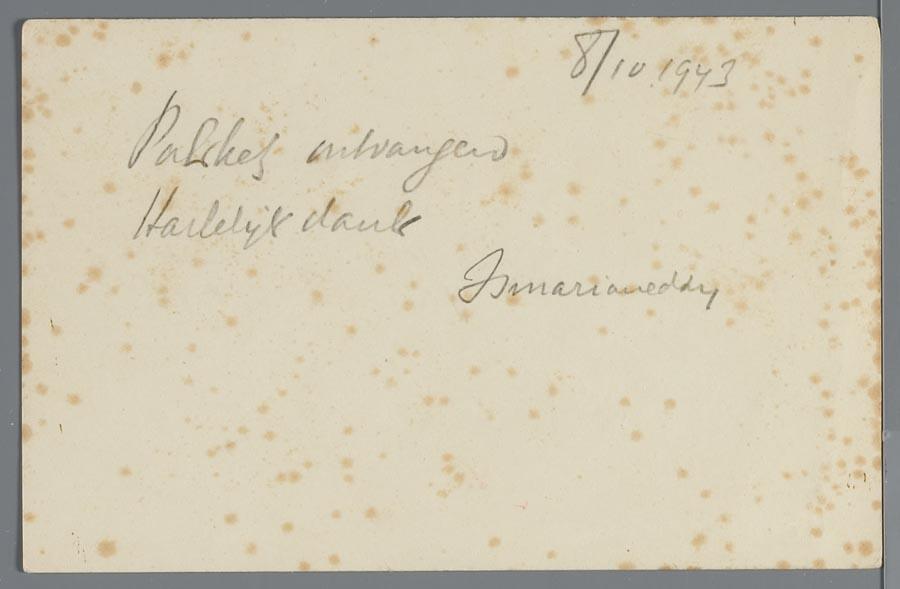 8/10 1943
Pakket ontvangen
Hartelijk dank
Ismarioneddy